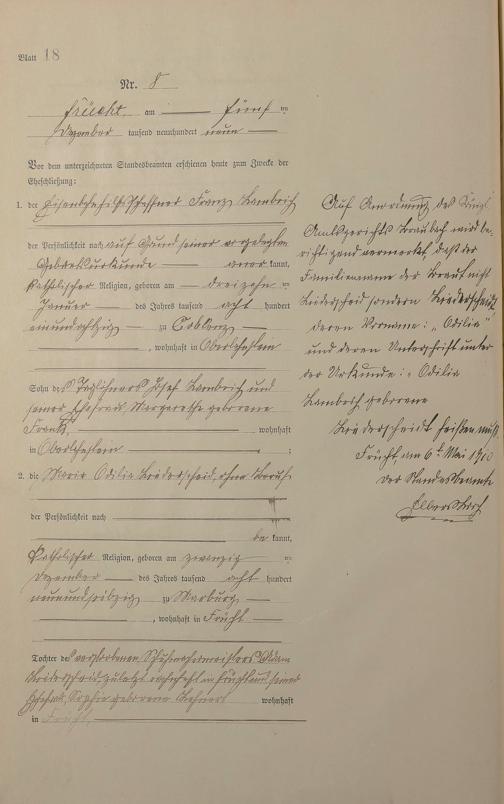 Blatt 18
Nr. 8
Frücht am fünf ten
Dezember tausend neunhundert neun
Vor dem unterzeichneten Standesbeamten erschienen heute zum Zwecke der
Eheschließung:
1. der Eisenbahnhilfsschaffner Franz Lambrich
der Persönlichkeit nach auf Grund seiner vorgelegten
Geburtsurkunde anerkannt,
katholischer Religion, geboren am dreizehn
Januar des Jahres tausend acht hundert
einundachtzig zu Coblenz
, wohnhaft in Oberlahnstein
Sohn des Taglöhners Josef Lambrich und
seiner Ehefrau Margarethe geborene
wohnhaft
in Oberlahnstein ;
2. die Maria Odilia Kriederscheid, ohne Beruf
der Persönlichkeit nach
be kannt,
katholischer Religion, geboren am zwanzig ten
Dezember des Jahres tausend acht hundert
neunundsiebzig zu Marburg
, wohnhaft in Frücht
Tochter des verstorbenen Schuhmachermeisters Adam
Kriederscheid zuletzt wohnhaft in Frücht und seiner
Ehefrau, Sophie geborene wohnhaft
in Frücht,
Auf Anordnung des Königl.
Amtsgerichts Braubach wird be-
richtigend vermerkt, daß der
Familienname der Braut nicht
Kriederscheid sondern Kriederscheidt,
deren Vorname: „Odilia"
und deren Unterschrift unter
der Urkunde: „Odilia
Lambrich geborene
Kriederscheidt heißen muß
Frücht, am 6t. Mai 1910
Der Standesbeamte